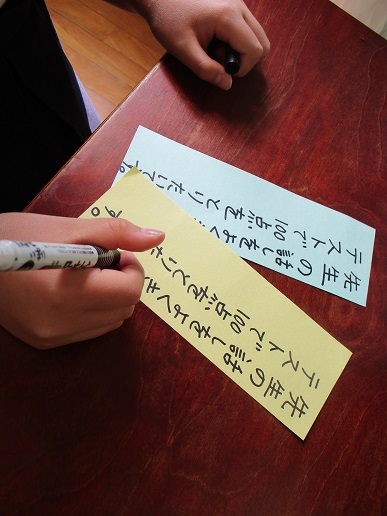 先生の話しをよく
テストで100点をとりたいで
す。
先生の話しをよくき
テストで100点をとりた
す。